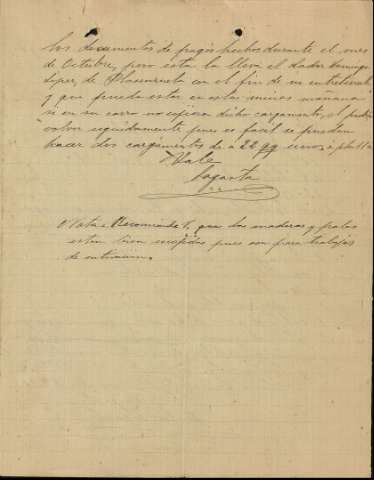 los documentos de pagos hechos durante el mes
de Octubre, pero esta la lleva el dador Domingo
Lopez, de Plasenzuela con el fin de
y que pueda estar en estas minas mañana
si en su carro no cojiera dicho cargamento, el podria
volver seguidamente pues es facil se puedan
hacer dos cargamentos de a 22 qq
Vale
Sagasta
Nota = Recomiendo V. que las maderas y palos
esten bien escojidos pues son para trabajos
de